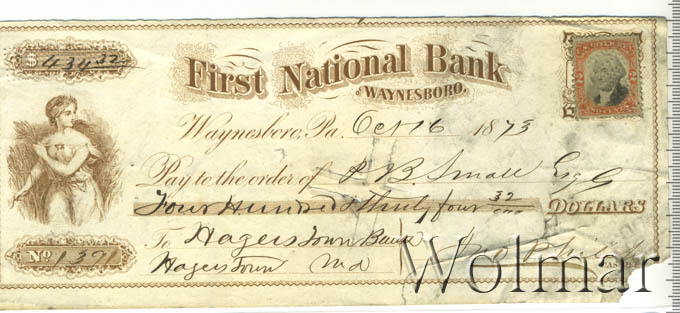 $ 434 32
First National Bank
OF WAYNESBORO.
Waynesboro, Pa. Oct 16 1873
Pay to the order of P. B. Small Esq
Four Hundred & Thirty four 32/100 DOLLARS
To Hagerstown Bank
Hagerstown Md
No 1391
Wolmar